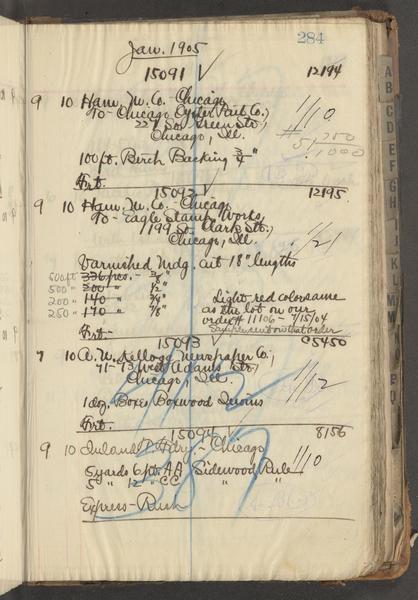 284
Jan. 1905
15091 √ 12194
9 10 Ham. M. Co. Chicago
To- Chicago Oyster Pail Co.,
Green Str.,
Chicago, Ill. 1/10
100 ft. Birch Backing 3/4"
Frt.
15092 √ 12195
9 10 Ham. M. Co. - Chicago
To- Eagle Stamp Works,
199 So. Clark Str.,
Chicago, Ill. 1/21
Varnished Mdg. cut 18" lengths
500 ft 336 pcs.
500 " 200 " 1/2"
200 " 140 "
250 " 170 " 7/8"
Light red color same
as the lot on our
order # 1106 - 7/15/04
Frt.
15093 √ C5450
7 10 A. N. Kellogg Newspaper Co.,
71-73 West Adams Str.,
Chicago, Ill. 1/12
1 doz. Boxes Boxwood Quoins
Frt.
15094 √ 8156
9 10 Inland T. Fdry. - Chicago 1/10
5 yards 6 pt. AA Sidewood Rule
5 " 12 " CC " "
Express - Rush
387
A
B
C
D
E
F
G
H
I
J
K
L
M